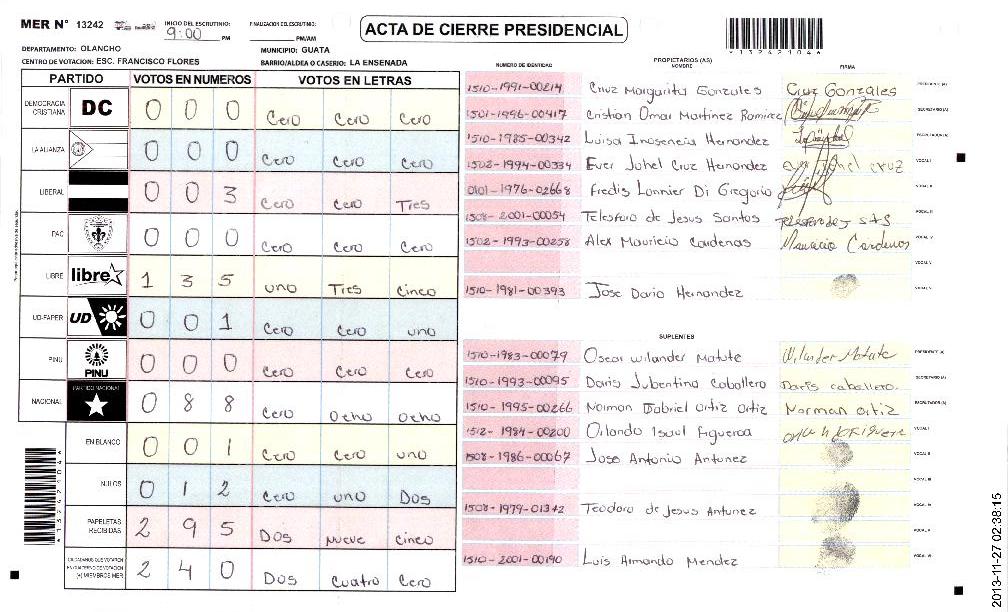 MER N° 13242
INICIO DEL ESCRUTINIO:
9:00 PM
FINALIZACION DEL ESCRUTINIO:
PM/AM
ACTA DE CIERRE PRESIDENCIAL
* 1 3 2 4 2 1 0 4 *
DEPARTAMENTO: OLANCHO
MUNICIPIO: GUATA
CENTRO DE VOTACION: ESC. FRANCISCO FLORES
BARRIO/ALDEA O CASERIO: LA ENSENADA
PARTIDO VOTOS EN NUMEROS VOTOS EN LETRAS
DEMOCRACIA CRISTIANA DC 0 0 0 Cero Cero Cero
LA ALIANZA 0 0 0 Cero Cero Cero
LIBERAL 0 0 3 Cero Cero Tres
PAC 0 0 0 Cero Cero Cero
LIBRE libre 1 3 5 uno Tres Cinco
UD-FAPER UD 0 0 1 Cero Cero uno
PINU PINU 0 0 0 Cero Cero Cero
NACIONAL PARTIDO NACIONAL 0 8 8 Cero Ocho Ocho
EN BLANCO 0 0 1 Cero Cero uno
NULOS 0 1 2 Cero uno Dos
PAPELETAS RECIBIDAS 2 9 5 Dos Nueve Cinco
CIUDADANOS QUE VOTARON EN CUADERNO DE VOTACION (+) MIEMBROS MER 2 4 0 Dos Cuatro Cero
NUMERO DE IDENTIDAD
PROPIETARIOS (AS)
NOMBRE
FIRMA
1510-1991-00214 Cruz Margarita Gonzales Cruz Gonzales PRESIDENTE (A)
1501-1996-00417 Cristian Omar Martinez Ramirez SECRETARIO (A)
1510-1985-00342 Luisa Inosencia Hernandez ESCRUTADOR (A)
1502-1994-00334 Ever Johel Cruz Hernandez VOCAL I
0101-1976-02668 Fredis Lonnier Di Gregorio VOCAL II
1508-2001-00054 Telesforo de Jesus Santos VOCAL III
1502-1993-00258 Alex Mauricio Cardenas Mauricio Cardenas VOCAL IV
VOCAL V
1510-1981-00393 Jose Dario Hernandez
SUPLENTES
1510-1983-00079 Oscar Wilander Matute Wilander Matute PRESIDENTE (A)
1510-1993-00095 Daris Jubentina Caballero Daris caballero. SECRETARIO (A)
1510-1995-00266 Norman Gabriel Ortiz Ortiz Norman ortiz ESCRUTADOR (A)
1512-1984-00200 Orlando Isaul Figueroa VOCAL I
1508-1986-00067 Jose Antonio Antunez VOCAL II
VOCAL III
1508-1979-01342 Teodoro de Jesus Antunez VOCAL IV
VOCAL V
1510-2001-00190 Luis Armando Mendez VOCAL VI
2013-11-27 02:38:15